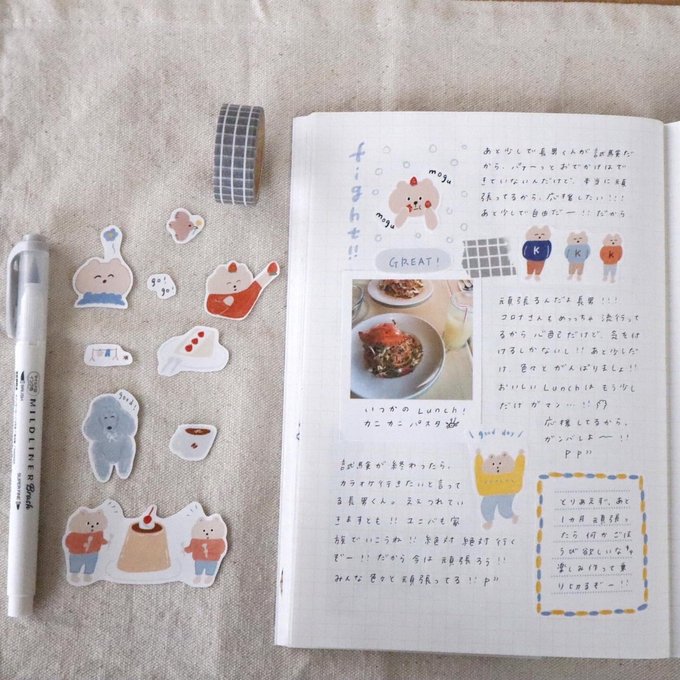 fight!!
mogu
mogu
GREAT!
あと少しで長男くんが試験だ
から、パァーっとおでかけはで
きていないんだけど、本当に頑
張ってるから、応援したい!!!
あと少しで自由だー!! だから
K
K
K
頑張るんだよ長男!!!
コロナさんもめっちゃ流行って
るから心配だけど、気を付
けるしかないし!! あと少しだ
け、色々とがんばりましょ!!
おいしいLunchはもう少し
だけガマン…!!
応援してるから、
ガンバしよー!!
いつかのLunch!
カニカニパスタ
good day
試験が終わったら、
カラオケ行きたいと言って
る長男くん。ええつれてい
きますとも!! ユニバも家
族でいこうね!! 絶対絶対行く
ぞー!! だから今は頑張ろう!!
みんな色々と頑張ってる!!
とりあえず、あと
1カ月頑張っ
たら何かごほ
うび欲しいな
楽しみ作って乗
りこえるぞー!!
go!
go!
good!
ZEBRA
MILDLINER Brush
SUPER FINE